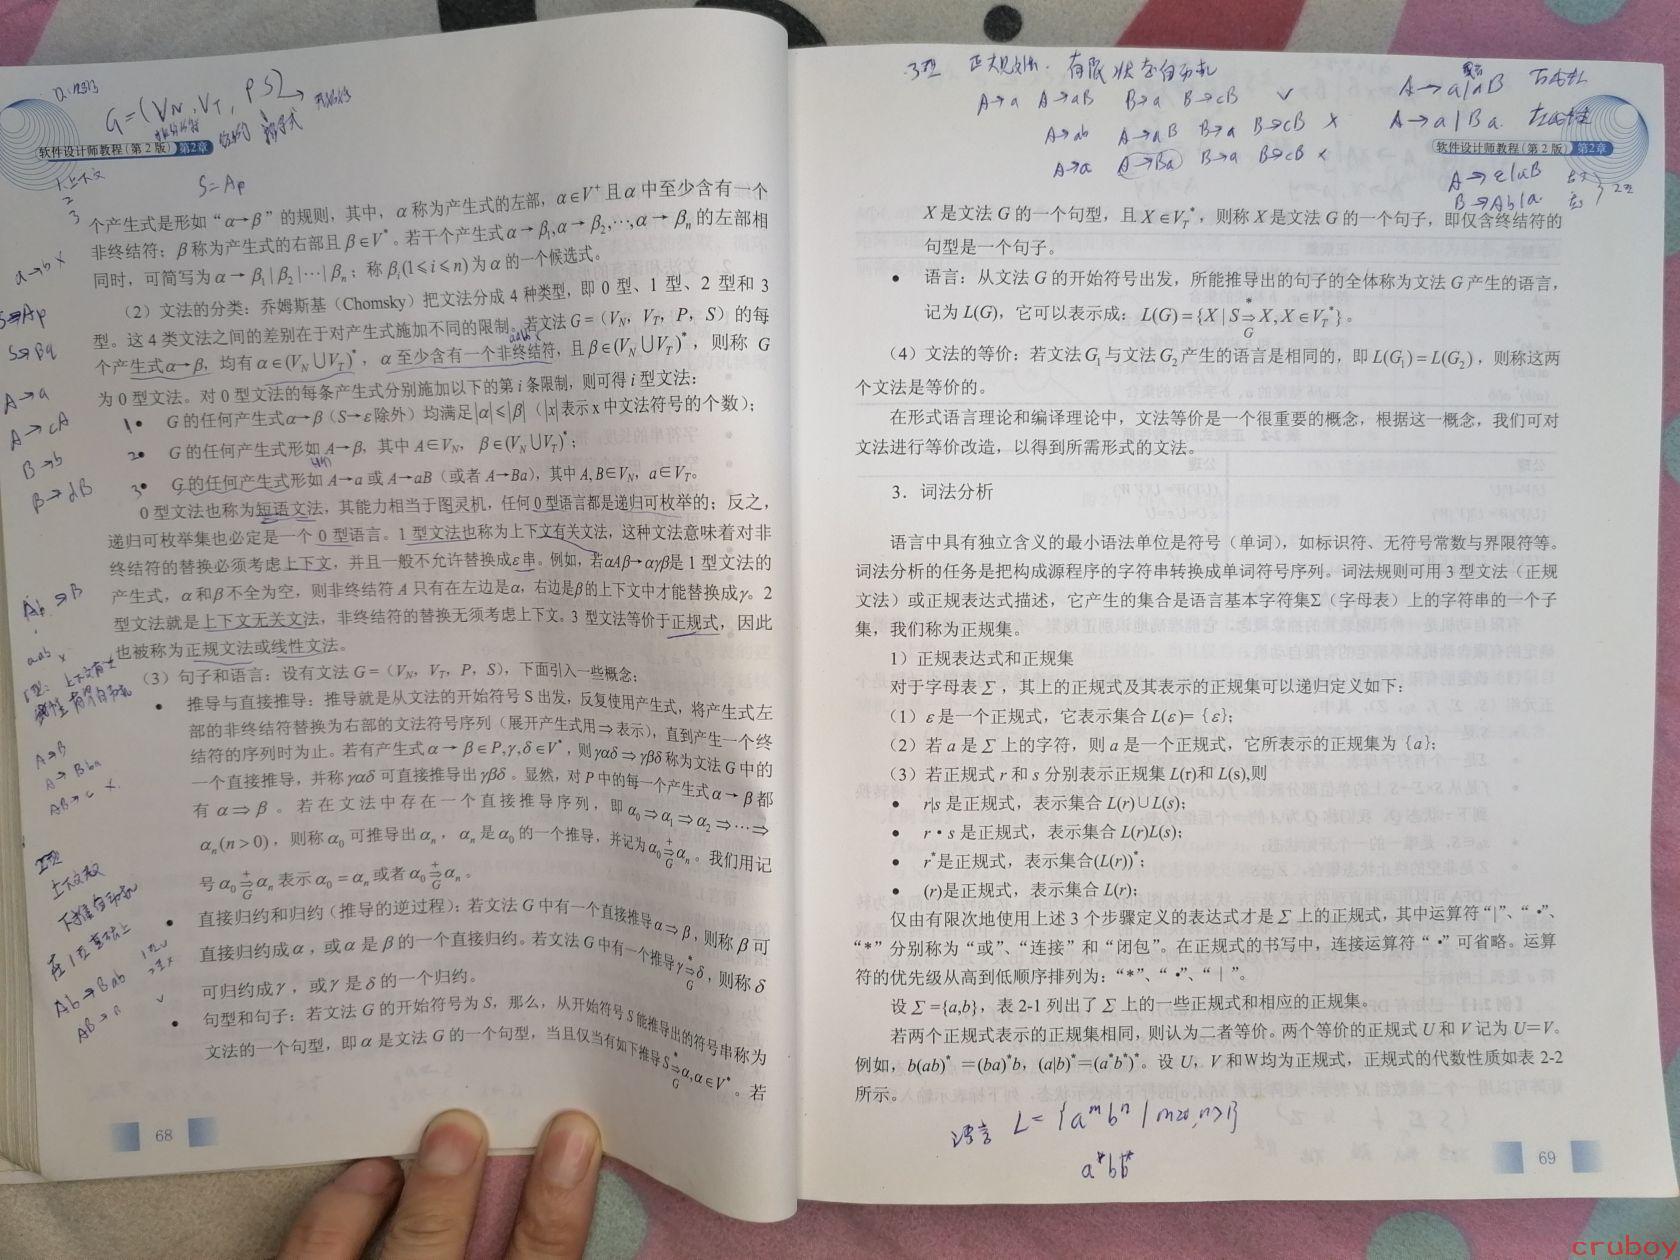 G=(VN,VT, P S)
软件设计师教程(第 2 版) 第2章
S→Ap
个产生式是形如“α→β”的规则，其中，α称为产生式的左部，α∈V⁺且α中至少含有一个
非终结符；β称为产生式的右部且β∈V*。若干个产生式α→β₁,α→β₂,⋯,α→βₙ的左部相
同时，可简写为α→β₁|β₂|⋯|βₙ；称βᵢ(1≤i≤n)为α的一个候选式。
（2）文法的分类：乔姆斯基（Chomsky）把文法分成 4 种类型，即 0 型、1 型、2 型和 3
型。这 4 类文法之间的差别在于对产生式施加不同的限制。若文法G=（VN，VT，P，S）的每
个产生式α→β，均有α∈(VN∪VT)*，α至少含有一个非终结符，且β∈(VN∪VT)*，则称 G
为 0 型文法。对 0 型文法的每条产生式分别施加以下的第 i 条限制，则可得 i 型文法：
1• G 的任何产生式α→β（S→ε除外）均满足|α|≤|β|（|x|表示 x 中文法符号的个数）；
2• G 的任何产生式形如 A→β，其中 A∈VN，β∈(VN∪VT)*；
3• G 的任何产生式形如 A→a 或 A→aB（或者 A→Ba），其中 A, B∈VN，a∈VT。
0 型文法也称为短语文法，其能力相当于图灵机，任何 0 型语言都是递归可枚举的；反之，
递归可枚举集也必定是一个 0 型语言。1 型文法也称为上下文有关文法，这种文法意味着对非
终结符的替换必须考虑上下文，并且一般不允许替换成ε串。例如，若αAβ→αγβ是 1 型文法的
产生式，α和β不全为空，则非终结符 A 只有在左边是α，右边是β的上下文中才能替换成γ。2
型文法就是上下文无关文法，非终结符的替换无须考虑上下文。3 型文法等价于正规式，因此
也被称为正规文法或线性文法。
（3）句子和语言：设有文法 G=（VN，VT，P，S），下面引入一些概念：
• 推导与直接推导：推导就是从文法的开始符号 S 出发，反复使用产生式，将产生式左
部的非终结符替换为右部的文法符号序列（展开产生式用⇒表示），直到产生一个终
结符的序列时为止。若有产生式α→β∈P,γ,δ∈V*，则γαδ⇒γβδ称为文法 G 中的
一个直接推导，并称γαδ可直接推导出γβδ。显然，对 P 中的每一个产生式α→β都
有α⇒β。若在文法中存在一个直接推导序列，即α₀⇒α₁⇒α₂⇒⋯⇒
αₙ(n>0)，则称α₀可推导出αₙ，αₙ是α₀的一个推导，并记为α₀ ⇒⁺G αₙ。我们用记
号α₀ ⇒⁺G αₙ表示α₀=αₙ或者α₀ ⇒⁺G αₙ。
• 直接归约和归约（推导的逆过程）：若文法 G 中有一个直接推导α⇒β，则称β可
直接归约成α，或α是β的一个直接归约。若文法 G 中有一个推导γ ⇒*G δ，则称δ
可归约成γ，或γ是δ的一个归约。
• 句型和句子：若文法 G 的开始符号为 S，那么，从开始符号 S 能推导出的符号串称为
文法的一个句型，即α是文法 G 的一个句型，当且仅当有如下推导 S ⇒*G α,α∈V*。若
68
a→b ×
S→Ap
S→Bq
A→a
A→cA
B→b
B→dB
Ab→B
aab ×
A→B
A→Bba
AB→c ×
2型
上下文无关
下推自动机
在1型基础上
1型√
2型×
Ab→Bab
3型 正规文法. 有限状态自动机
A→a A→aB B→a B→cB √
A→ab A→aB B→a B→cB ×
A→a A→Ba B→a B→cB ×
A→a|aB 右线性
A→a|Ba 左线性
软件设计师教程(第 2 版) 第2章
A→ε|aB
B→Ab|a
X 是文法 G 的一个句型，且 X∈VT*，则称 X 是文法 G 的一个句子，即仅含终结符的
句型是一个句子。
• 语言：从文法 G 的开始符号出发，所能推导出的句子的全体称为文法 G 产生的语言，
记为 L(G)，它可以表示成：L(G)={X|S ⇒*G X, X∈VT*}。
（4）文法的等价：若文法G₁与文法G₂产生的语言是相同的，即 L(G₁)=L(G₂)，则称这两
个文法是等价的。
在形式语言理论和编译理论中，文法等价是一个很重要的概念，根据这一概念，我们可对
文法进行等价改造，以得到所需形式的文法。
3．词法分析
语言中具有独立含义的最小语法单位是符号（单词），如标识符、无符号常数与界限符等。
词法分析的任务是把构成源程序的字符串转换成单词符号序列。词法规则可用 3 型文法（正规
文法）或正规表达式描述，它产生的集合是语言基本字符集Σ（字母表）上的字符串的一个子
集，我们称为正规集。
1）正规表达式和正规集
对于字母表∑，其上的正规式及其表示的正规集可以递归定义如下：
（1）ε是一个正规式，它表示集合 L(ε)={ε}；
（2）若 a 是∑上的字符，则 a 是一个正规式，它所表示的正规集为{a}；
（3）若正规式 r 和 s 分别表示正规集 L(r)和 L(s),则
• r|s 是正规式，表示集合 L(r)∪L(s)；
• r•s 是正规式，表示集合 L(r)L(s)；
• r*是正规式，表示集合(L(r))*；
• (r)是正规式，表示集合 L(r)；
仅由有限次地使用上述 3 个步骤定义的表达式才是∑上的正规式，其中运算符“|”、“•”、
“*”分别称为“或”、“连接”和“闭包”。在正规式的书写中，连接运算符“•”可省略。运算
符的优先级从高到低顺序排列为：“*”、“•”、“｜”。
设∑={a,b}，表 2-1 列出了∑上的一些正规式和相应的正规集。
若两个正规式表示的正规集相同，则认为二者等价。两个等价的正规式 U 和 V 记为 U=V。
例如，b(ab)*=(ba)*b，(a|b)*=(a*b*)*。设 U，V 和W均为正规式，正规式的代数性质如表 2-2
所示。
语言 L={aᵐbⁿ|m≥0,n≥1}
a*bb*
69
cruboy